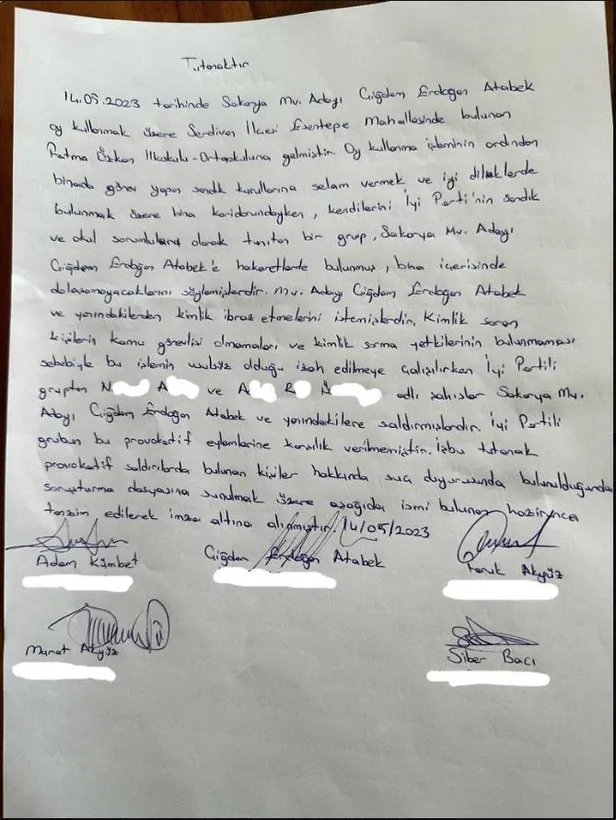 Tutanaktır
14.05.2023 tarihinde Sakarya Mv. Adayı Çiğdem Erdoğan Atabek
oy kullanmak üzere Serdivan İlçesi Esentepe Mahallesinde bulunan
Fatma Özkan İlkokulu-Ortaokuluna gelmiştir. Oy kullanma işleminin ardından
binada görev yapan sandık kurullarına selam vermek ve iyi dileklerde
bulunmak üzere bina koridorundayken, kendilerini İyi Parti'nin sandık
ve okul sorumluları olarak tanıtan bir grup, Sakarya Mv. Adayı
Çiğdem Erdoğan Atabek'e hakaretlerde bulunmuş, bina içerisinde
dolaşamayacaklarını söylemişlerdir. Mv. Adayı Çiğdem Erdoğan Atabek
ve yanındakilerden kimlik ibraz etmelerini istemişlerdir. Kimlik soran
kişilerin kamu görevlisi olmamaları ve kimlik sorma yetkilerinin bulunmaması
sebebiyle bu işlemin usulsüz olduğu izah edilmeye çalışılırken İyi Partili
gruptan N A ve A R A adlı şahıslar Sakarya Mv.
Adayı Çiğdem Erdoğan Atabek ve yanındakilere saldırmışlardır. İyi Partili
grubun bu provokatif eylemlerine karşılık verilmemiştir. İşbu tutanak
provokatif saldırılarda bulunan kişiler hakkında suç duyurusunda bulunulduğunda
soruşturma dosyasına sunulmak üzere aşağıda ismi bulunan hazirunca
tanzim edilerek imza altına alınmıştır. 14/05/2023
Adem Kımbet Çiğdem Erdoğan Atabek Faruk Akyüz
Murat Akyüz Siber Bacı